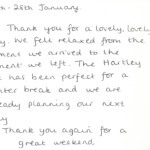 - 28th January.
Thank you for a lovely, lovely
y. We felt relaxed from the
ment we arrived to the
ment we left. The Hartley
has been perfect for a
nter break and we are
eady planning our next
y
Thank you again for a
great weekend,